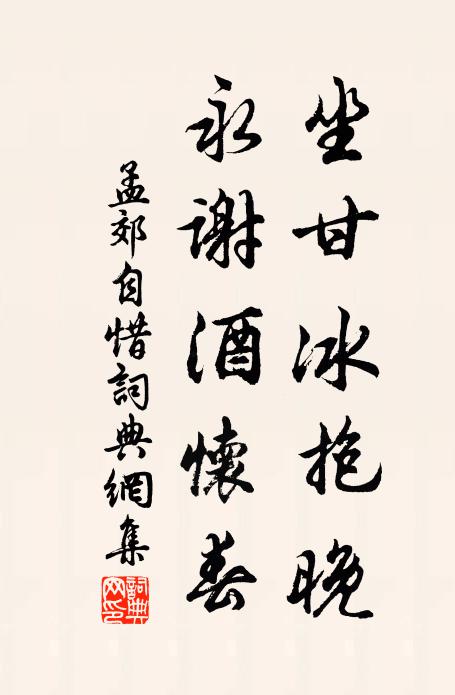 坐甘冰抱晚
永謝酒懷春
孟郊自惜詞典網集
詞典網印